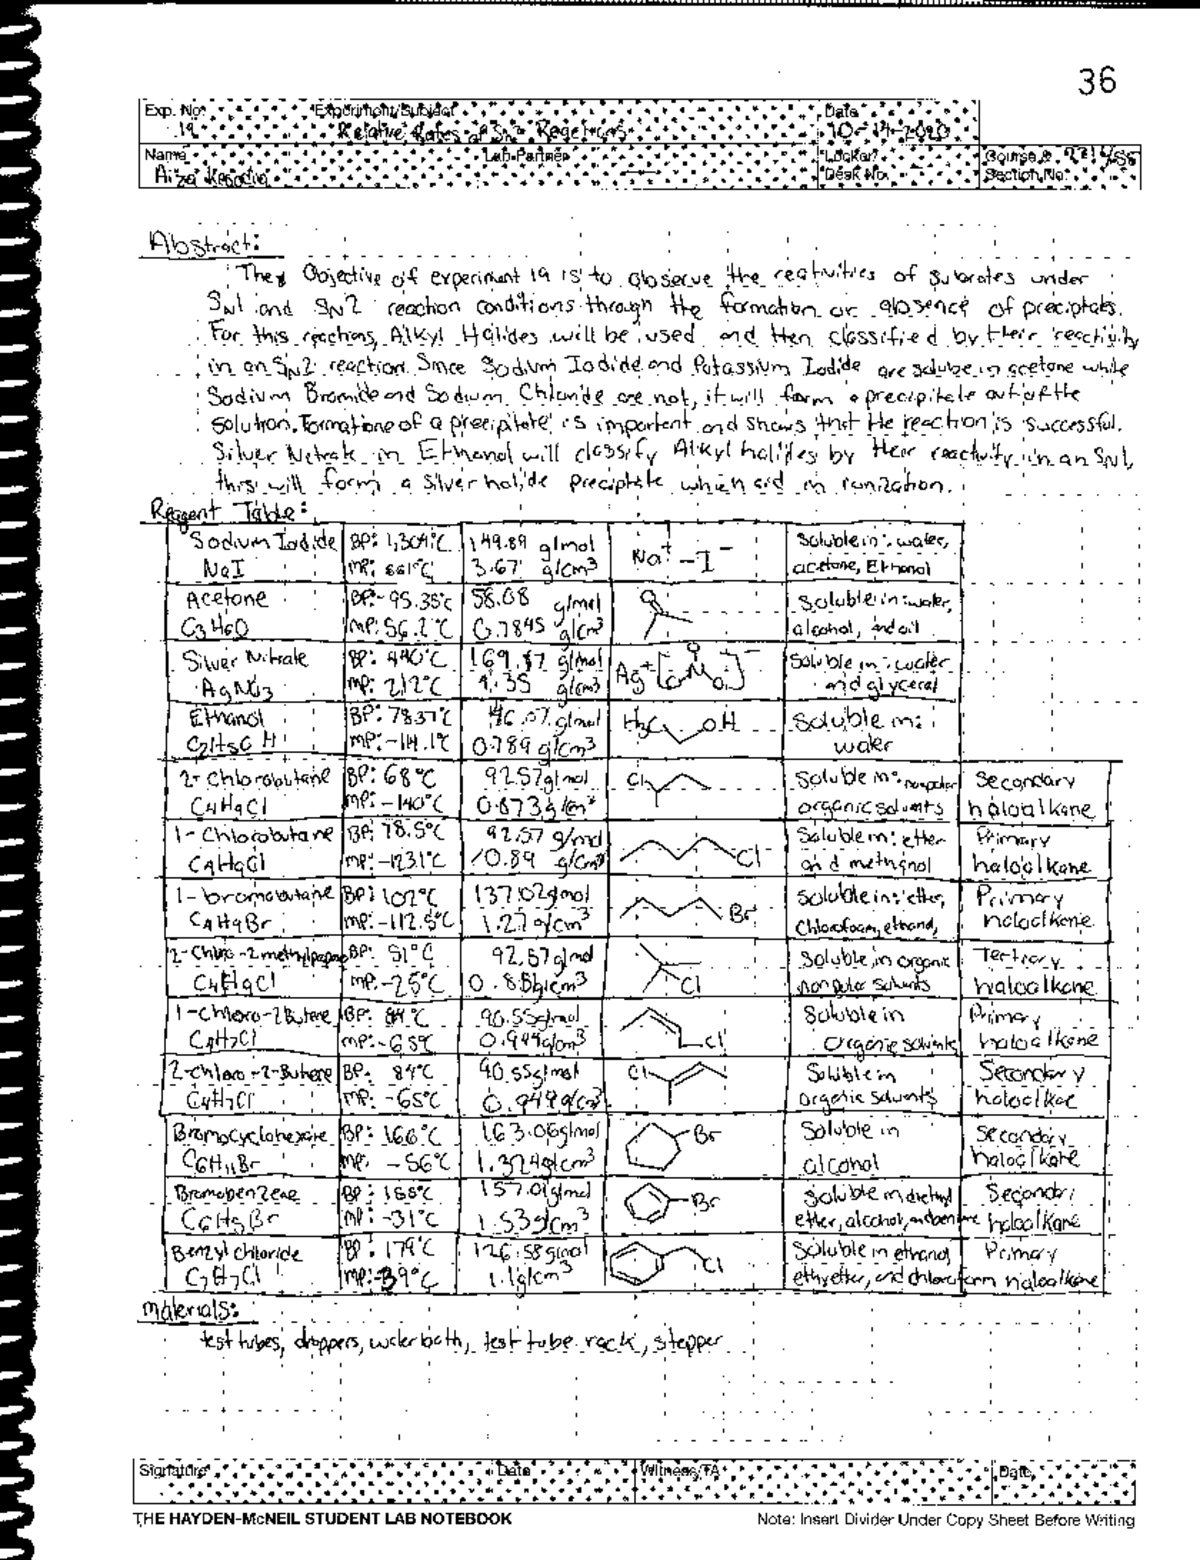 36
Exp. No. Experiment/Subject Date
19 Relative Rates of SN2 Reactions 10-14-2020
Name Lab Partner Locker/ Desk No. Course & Section No.
Abstract:
The Objective of experiment 19 is to observe the reativities of substrates under
SN1 and SN2 reaction conditions through the formation or absence of preciptates.
For this reactions, Alkyl Halides will be used and then classified by their reactivity
in an SN2 reaction. Since Sodium Iodide and Potassium Iodide are soluble in acetone while
Sodium Bromide and Sodium Chloride are not, it will form a precipitate out of the
solution. Formatione of a precipitate is important and shows that the reaction is successful.
Silver Nitrate in Ethanol will classify Alkyl halides by their reactivity in an SN1,
this will form a silver halide preciptate which aid in ionization.
Reagent Table:
Sodium Iodide BP: 1,304°C 149.89 g/mol Na+ -I- Soluble in: water,
NaI MP: 661°C 3.67 g/cm3 acetone, Ethanol
Acetone BP: -95.35°C 58.08 g/mol O Soluble in: water,
C3H6O MP: 56.2°C 0.7845 g/cm3 alcohol, and oil
Silver Nitrate BP: 440°C 169.87 g/mol Soluble in: water
AgNO3 MP: 212°C 4.35 g/cm3 and glycerol
Ethanol BP: 78.37°C 46.07 g/mol H3C OH Soluble in:
C2H5OH MP: -114.1°C 0.789 g/cm3 water
2-Chlorobutane BP: 68°C 92.57 g/mol Cl Soluble in: nonpolar Secondary
C4H9Cl MP: -140°C 0.873 g/cm3 organic solvents haloalkane
1-Chlorobutane BP: 78.5°C 92.57 g/mol Cl Soluble in: ether Primary
C4H9Cl MP: -123.1°C 0.89 g/cm3 and methanol haloalkane
1-bromobutane BP: 102°C 137.02 g/mol Br Soluble in: ether, Primary
C4H9Br MP: -112.5°C 1.27 g/cm3 Chloroform, ethanol, haloalkane
2-Chloro-2methylpropane BP: 51°C 92.57 g/mol Cl Soluble in organic Tertiary
C4H9Cl MP: -25°C 0.851 g/cm3 nonpolar solvents haloalkane
1-Chloro-2Butene BP: 84°C 90.55 g/mol Cl Soluble in Primary
C4H7Cl MP: -65°C 0.944 g/cm3 organic solvents haloalkane
2-Chloro-2-Butene BP: 84°C 90.55 g/mol Cl Soluble in Secondary
C4H7Cl MP: -65°C 0.944 g/cm3 organic solvents haloalkae
Bromocyclohexane BP: 166°C 163.06 g/mol Br Soluble in Secondary
C6H11Br MP: -56°C 1.324 g/cm3 alcohol haloalkane
Bromobenzene BP: 156°C 157.01 g/mol Br Soluble in diethyl
C6H5Br MP: -31°C 1.53 g/cm3 ether, alcohol, and benzene haloalkane
Benzyl chloride BP: 179°C 126.58 g/mol Cl Soluble in ethanol, Primary
C7H7Cl MP: -39°C 1.1 g/cm3 ethyl ether, and chloroform haloalkane
Materials:
test tubes, droppers, water bath, test tube rack, stopper
Signature Date Witness/TA Date
THE HAYDEN-McNEIL STUDENT LAB NOTEBOOK Note: Insert Divider Under Copy Sheet Before Writing